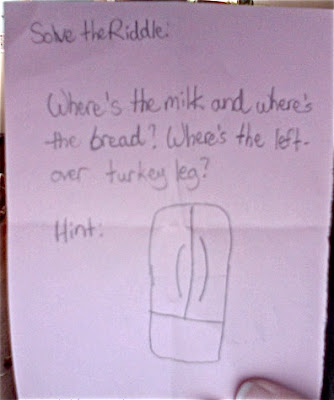 Solve the Riddle:
Where's the milk and where's
the bread? Where's the left-
over turkey leg?
Hint: